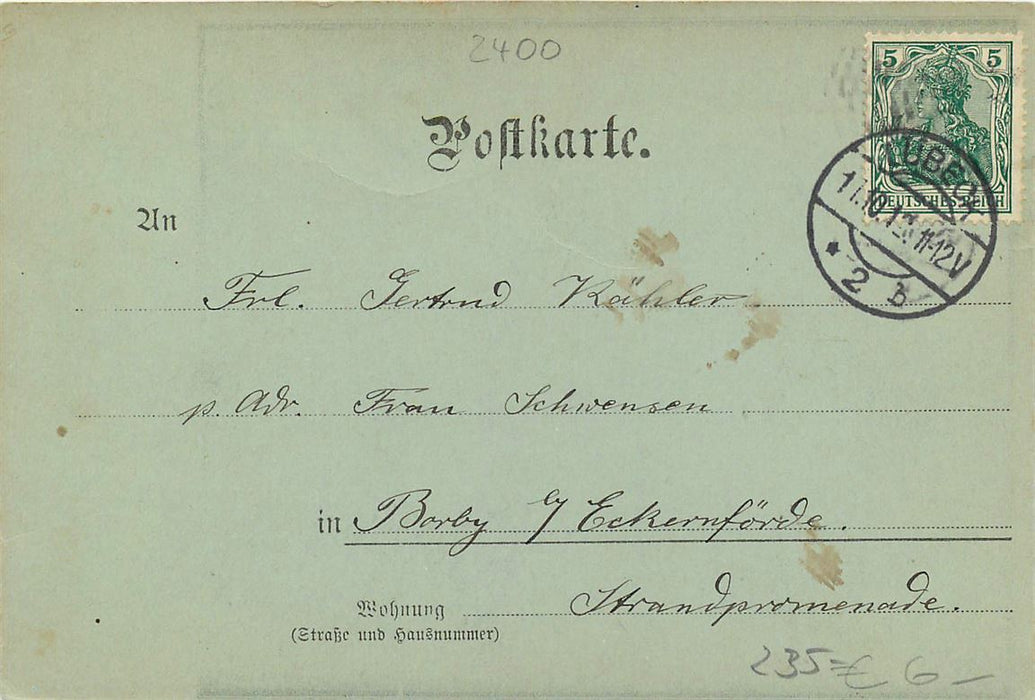 2400
5 5
DEUTSCHES REICH
LÜBECK
11-12V
* 2 b
Postkarte.
An
Frl. Gertrud Kähler
p. Adr. Frau Schwensen
in Borby b/ Eckernförde.
Wohnung Strandpromenade.
(Straße und Hausnummer)
235 € 6-